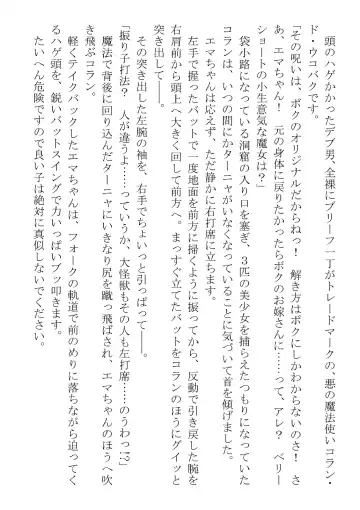 頭のハゲかかったデブ男、全裸にブリーフ一丁がトレードマークの、悪の魔法使いコラン・
ド・ウコバクです。
「その呪いは、ボクのオリジナルだからね！　解き方はボクにしかわからないのさ！　さ
あ、エマちゃん！　元の身体に戻りたかったらボクのお嫁さんに……って、アレ？　ベリー
ショートの小生意気な魔女は？」
袋小路になっている洞窟の入り口を塞ぎ、３匹の美少女を捕らえたつもりになっていた
コランは、いつの間にかターニャがいなくなっていることに気づいて首を傾げました。
エマちゃんは応えず、ただ静かに右打席に立ちます。
左手で握ったバットで一度地面を前方に掃くように振ってから、反動で引き戻した腕を
右肩前から頭上へ大きく回して前方へ。まっすぐ立てたバットをコランのほうにグイッと
突き出して。
その突き出した左腕の袖を、右手でちょいっと引っぱって――。
「振り子打法？　人が違うよ……っていうか、大怪獣もその人も左打席……のうわっ!?」
魔法で背後に回り込んだターニャにいきなり尻を蹴っ飛ばされ、エマちゃんのほうへ吹
き飛ぶコラン。
軽くテイクバックしたエマちゃんは、フォークの軌道で前のめりに落ちながら迫ってく
るハゲ頭を、鋭いバットスイングで力いっぱいブッ叩きます。
たいへん危険ですので良い子は絶対に真似しないでください。